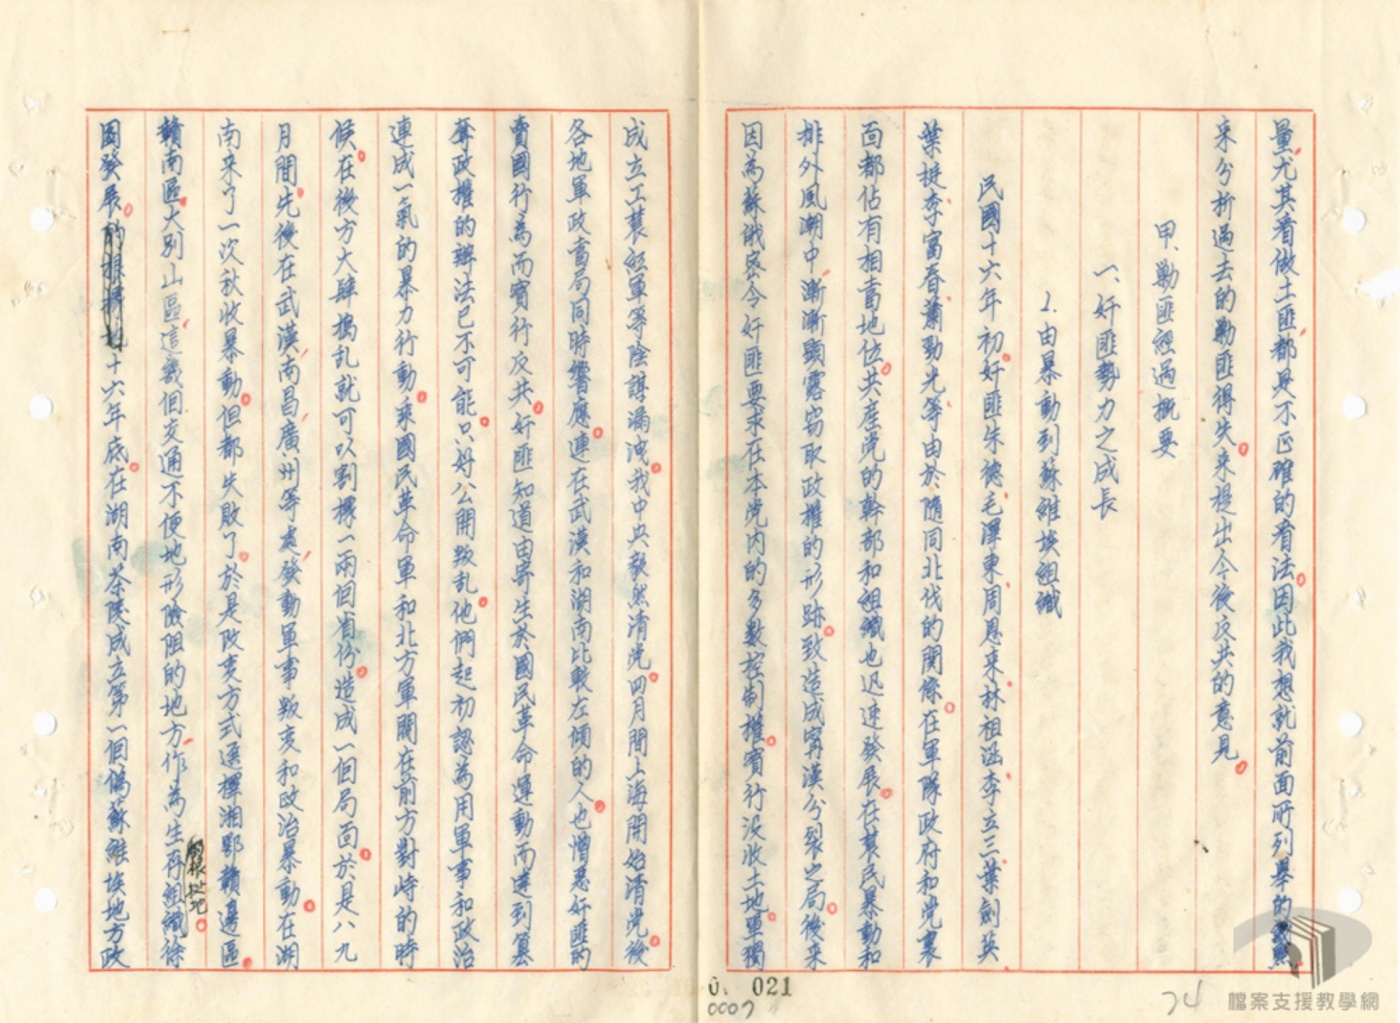 量，尤其看做土匪，都是不正確的看法。因此我想就前面所列舉的幾點
來分析過去的勦匪得失。來提出今後反共的意見。
甲、勦匪經過概要
一、奸匪勢力之成長
1.由暴動到蘇維埃組織
民國十六年初。奸匪朱德、毛澤東、周恩來、林祖涵、李立三、葉劍英、
葉挺、李富春、蕭勁光等，由於隨同北伐的關係。在軍隊政府和党裏
面都佔有相當地位。共產党的幹部和組織也迅速發展。在農民暴動和
排外風潮中，漸漸顯露竊取政權的形跡。致造成寧漢分裂之局。後來
因為蘇俄密令奸匪要求在本党内的多數控制權。實行沒收土地。單獨
成立工農紅軍等陰謀漏洩。我中央毅然清党。四月間上海開始清党。後
各地軍政當局同時響應。連在武漢和湖南比較左傾的人。也憎惡奸匪的
賣國行為而實行反共。奸匪知道由寄生於國民革命運動而達到篡
奪政權的辦法已不可能。只好公開叛乱。他們起初認為用軍事和政治
連成一氣的暴力行動。乘國民革命軍和北方軍閥在前方對峙的時
候。在後方大肆搗乱就可以割據一兩個省份。造成一個局面。於是八九
月間。先後在武漢，南昌，廣州等處，發動軍事叛变和政治暴動。在湖
南来了一次秋收暴動。但都失敗了。於是改变方式選擇湘鄂贛邊區。
贛南區。大別山區，這幾個交通不便地形險阻的地方，作為生存組織
的根據地。
圖發展。十六年底。在湖南茶陵成立第一個偽蘇維埃地方政
0. 021
0007
24
檔案支援教學網